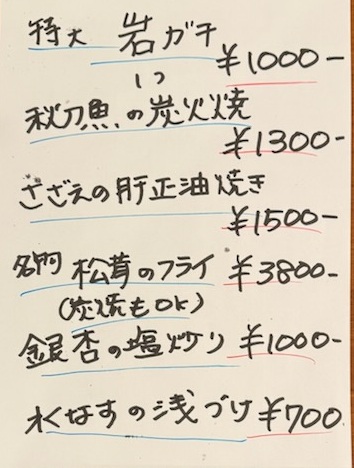 特大 岩ガキ
1コ ¥1000-
秋刀魚の炭火焼
¥1300-
さざえの肝正油焼き
¥1500-
名門 松茸のフライ ¥3800-
(炭焼もOK)
銀杏の塩炒り ¥1000-
水なすの浅づけ ¥700